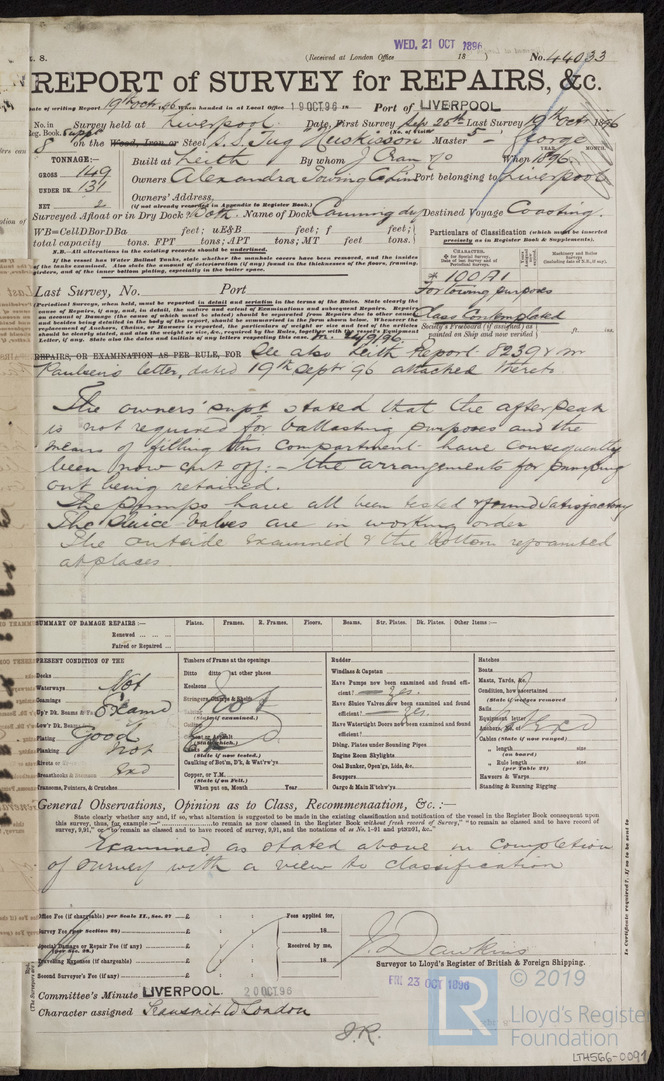 WED. 21 OCT 1896
(Received at London Office 18 ) No. 44033
REPORT of SURVEY for REPAIRS, &c.
Date of writing Report 19th Oct 96 When handed in at Local Office 19 OCT 96 18 Port of LIVERPOOL
No. in Reg. Book. Survey held at Liverpool Date, First Survey Sep 25th Last Survey 19th Octr 1896
8 on the Wood, Iron or Steel S.S. Tug Huskisson Master George
TONNAGE:— Built at Leith By whom J Cran & Co When 1896
YEAR. MONTH.
GROSS 149
UNDER DK. 131
NET 2
Owners Alexandra Towing Co Lim Port belonging to Liverpool
Owners' Address,
(if not already recorded in Appendix to Register Book.)
Surveyed Afloat or in Dry Dock? Both Name of Dock Canning dry Destined Voyage Coasting.
WB=CellDBorDBa feet; uE&B feet; f feet;
total capacity tons. FPT tons; APT tons; MT feet tons.
N.B.—All alterations in the existing records should be underlined.
If the vessel has Water Ballast Tanks, state whether the manhole covers have been removed, and the insides of the tanks examined. Also state the amount of deterioration (if any) found in the thicknesses of the floors, framing, girders, and of the inner bottom plating, especially in the boiler space.
Particulars of Classification (which must be inserted precisely as in Register Book & Supplements).
CHARACTER,
Machinery and Boiler Surveys
* 100 A1
For towing purposes
Class Contemplated
Society's Freeboard (if assigned) as painted on Ship and now verified ft. ins.
Last Survey, No. Port
(Periodical Surveys, when held, must be reported in detail and seriatim in the terms of the Rules. State clearly the cause of Repairs, if any, and, in detail, the nature and extent of Examinations and subsequent Repairs. Repairs on account of Damage (the cause of which must be stated) should be separated from Repairs due to other causes, and besides being detailed in the body of the report, should be summarised in the form shown below. Whenever the replacement of Anchors, Chains, or Hawsers is reported, the particulars of weight or size and test of the articles should be clearly stated, and also the weight or size, &c., required by the Rules, together with the vessel's Equipment Letter, if any. State also the dates and initials of any letters respecting this case.
REPAIRS, OR EXAMINATION AS PER RULE, FOR See also Leith Report 8239 & Mr
Paulsen's letter, dated 19th Sept 96 attached thereto
The owners' supt stated that the after peak
is not required for ballasting purposes and the
means of filling this compartment have consequently
been now cut off:— the arrangements for pumping
out being retained.
The pumps have all been tested & found satisfactory
The sluice valves are in working order
The outside examined & the bottom repainted
at places.
SUMMARY OF DAMAGE REPAIRS:— Plates. Frames. R. Frames. Floors. Beams. Str. Plates. Dk. Plates. Other Items:—
Renewed ... ... ...
Faired or Repaired ...
PRESENT CONDITION OF THE
Decks
Waterways
Coamings
Up'r Dk. Beams & Fa
Low'r Dk. Beams
Plating
Planking
Rivets or
Breasthooks & Stemson
Transoms, Pointers, & Crutches
Not
Examd
Good
not
Exd
Timbers of Frame at the openings
Ditto ditto at other places
Keelsons
Stringers, Clamps & Shelfs
(State if examined.)
not
(State if now tested.)
Caulking of Bot'm, D'k, & Wat'rw'ys
Copper, or Y.M.
(State if on Felt.)
When put on, Month Year
Rudder
Windlass & Capstan
Have Pumps now been examined and found efficient? Yes.
Have Sluice Valves now been examined and found efficient? Yes.
Have Watertight Doors now been examined and found efficient?
Dblng. Plates under Sounding Pipes
Engine Room Skylights
Coal Bunker, Open'gs, Lids, &c.
Scuppers
Cargo & Main H'tchw'ys
Hatches
Boats
Masts, Yards, &c.
Condition, how ascertained
(State if wedges removed
Sails
Equipment letter
Anchors, No. of
Cables (State if now ranged)
„ length size
(on board)
„ Rule length size
(per Table 22)
Hawsers & Warps
Standing & Running Rigging
General Observations, Opinion as to Class, Recommendation, &c. :—
State clearly whether any, and if so, what alteration is suggested to be made in the existing classification and notification of the vessel in the Register Book consequent upon
this survey, thus, for example :—" to remain as now classed in the Register Book without fresh record of Survey," "to remain as classed and to have record of
survey, 9,91," or "to remain as classed and to have record of survey, 9,91, and the notations of ss No. 1-91 and ptNDt91, &c."
Examined as stated above in completion
of survey with a view to classification
Office Fee (if chargeable) per Scale II., Sec. 27 £ : : Fees applied for,
Survey Fee (per Section 28) £ : : 18
Special Damage or Repair Fee (if any) (per Sec. 28.) £ : : Received by me,
Travelling Expenses (if chargeable) £ : : 18
Second Surveyor's Fee (if any) £ : :
J. Dawkins
Surveyor to Lloyd's Register of British & Foreign Shipping.
FRI 23 OCT 1896
Committee's Minute LIVERPOOL. 20 OCT 96
Character assigned Transmit to London
J.R.
LR
© 2019
Lloyd's Register
Foundation
LTH566-0091